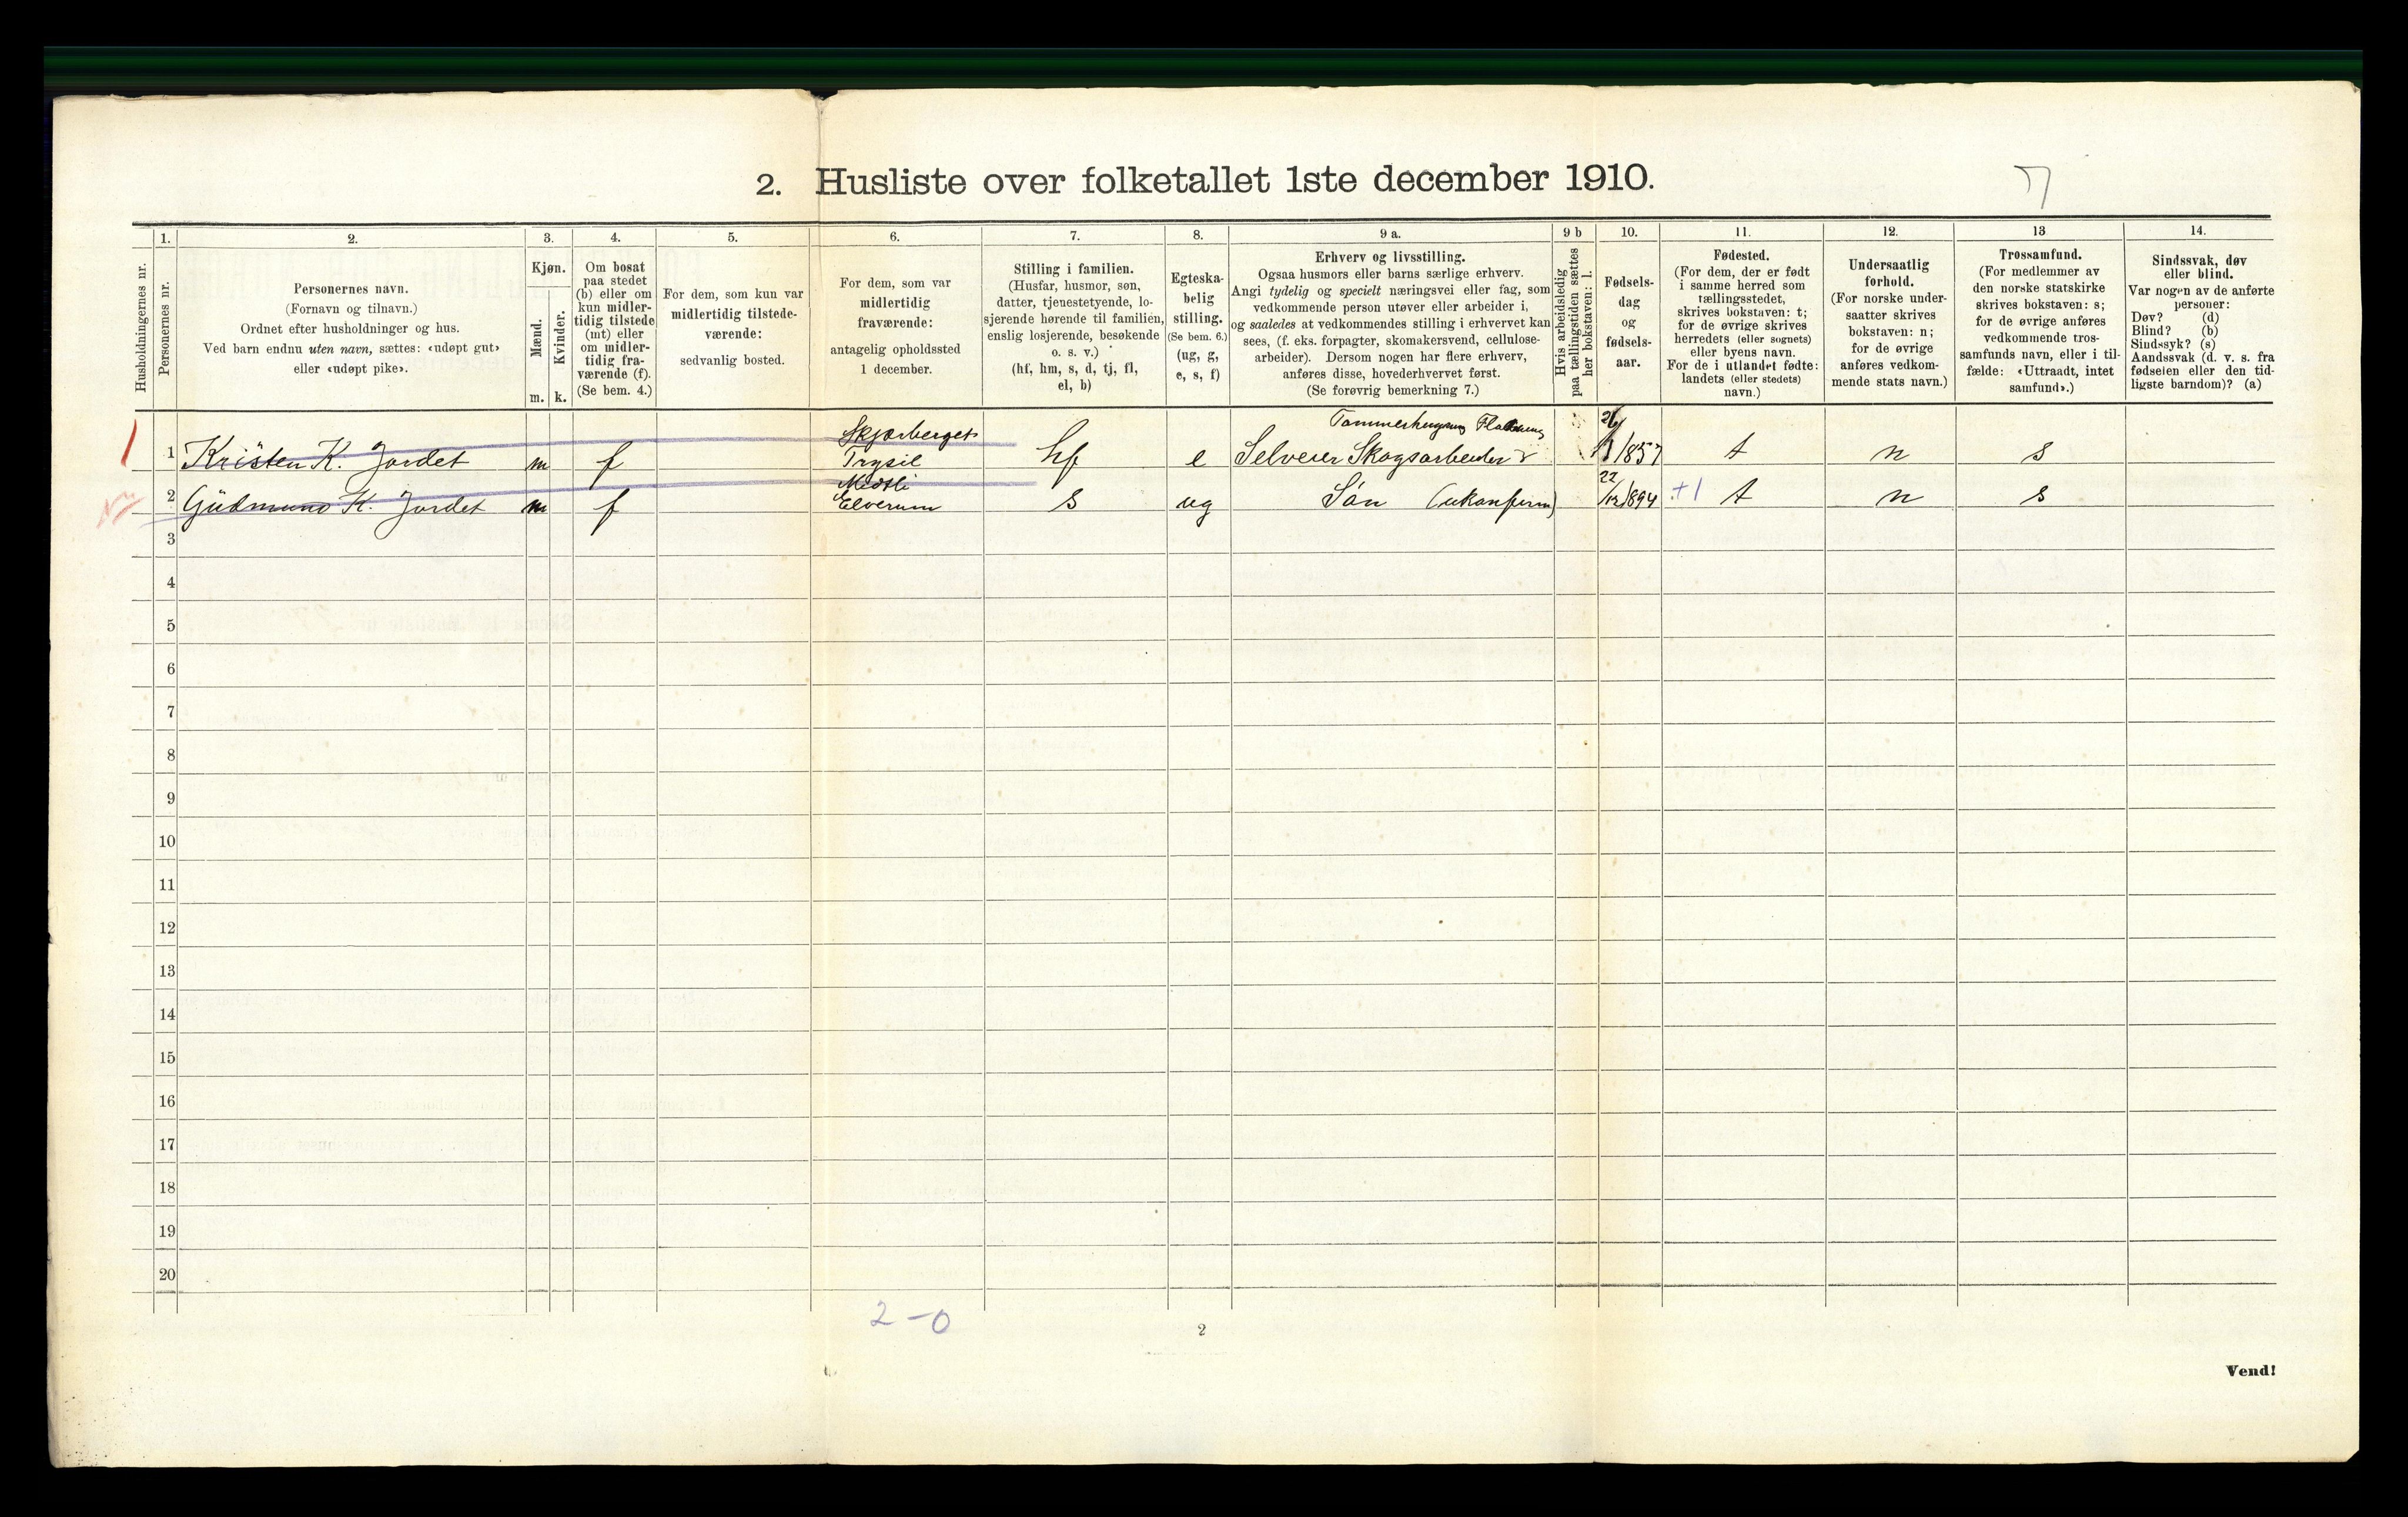 2. Husliste over folketallet 1ste december 1910.
1.
2.
3.
4.
5.
6.
7.
8.
9 a.
9 b
10.
11.
12.
13
14.
Husholdningernes nr.
Personernes nr.
Personernes navn.
(Fornavn og tilnavn.)
Ordnet efter husholdninger og hus.
Ved barn endnu uten navn, sættes: «udøpt gut»
eller «udøpt pike».
Kjøn.
Mænd.
Kvinder.
m.
k.
Om bosat
paa stedet
(b) eller om
kun midler-
tidig tilstede
(mt) eller
om midler-
tidig fra-
værende (f).
(Se bem. 4.)
For dem, som kun var
midlertidig tilstede-
værende:
sedvanlig bosted.
For dem, som var
midlertidig
fraværende:
antagelig opholdssted
1 december.
Stilling i familien.
(Husfar, husmor, søn,
datter, tjenestetyende, lo-
sjerende hørende til familien,
enslig losjerende, besøkende
o. s. v.)
(hf, hm, s, d, tj, fl,
el, b)
Egteska-
belig
stilling.
(Se bem. 6.)
(ug, g,
e, s, f)
Erhverv og livsstilling.
Ogsaa husmors eller barns særlige erhverv.
Angi tydelig og specielt næringsvei eller fag, som
vedkommende person utøver eller arbeider i,
og saaledes at vedkommendes stilling i erhvervet kan
sees, (f. eks. forpagter, skomakersvend, cellulose-
arbeider). Dersom nogen har flere erhverv,
anføres disse, hovederhvervet først.
(Se forøvrig bemerkning 7.)
Hvis arbeidsledig
paa tællingstiden sættes
her bokstaven: l.
Fødsels-
dag
og
fødsels-
aar.
Fødested.
(For dem, der er født
i samme herred som
tællingsstedet,
skrives bokstaven: t;
for de øvrige skrives
herredets (eller sognets)
eller byens navn.
For de i utlandet fødte:
landets (eller stedets)
navn.)
Undersaatlig
forhold.
(For norske under-
saatter skrives
bokstaven: n;
for de øvrige
anføres vedkom-
mende stats navn.)
Trossamfund.
(For medlemmer av
den norske statskirke
skrives bokstaven: s;
for de øvrige anføres
vedkommende tros-
samfunds navn, eller i til-
fælde: «Uttraadt, intet
samfund».)
Sindssvak, døv
eller blind.
Var nogen av de anførte
personer:
Døv? (d)
Blind? (b)
Sindssyk? (s)
Aandssvak (d. v. s. fra
fødselen eller den tid-
ligste barndom)? (a)
Skjærberget
1 Kristen K. Jordet m f Trysil hf e Selveier Skogsarbeider 1857 t n s
2 Gudmund K. Jordet m f Elverum s ug Søn (ukonfirm) 22/12 1894 +1 t n s
3
4
5
6
7
8
9
10
11
12
13
14
15
16
17
18
19
20
2-0
2
Vend!